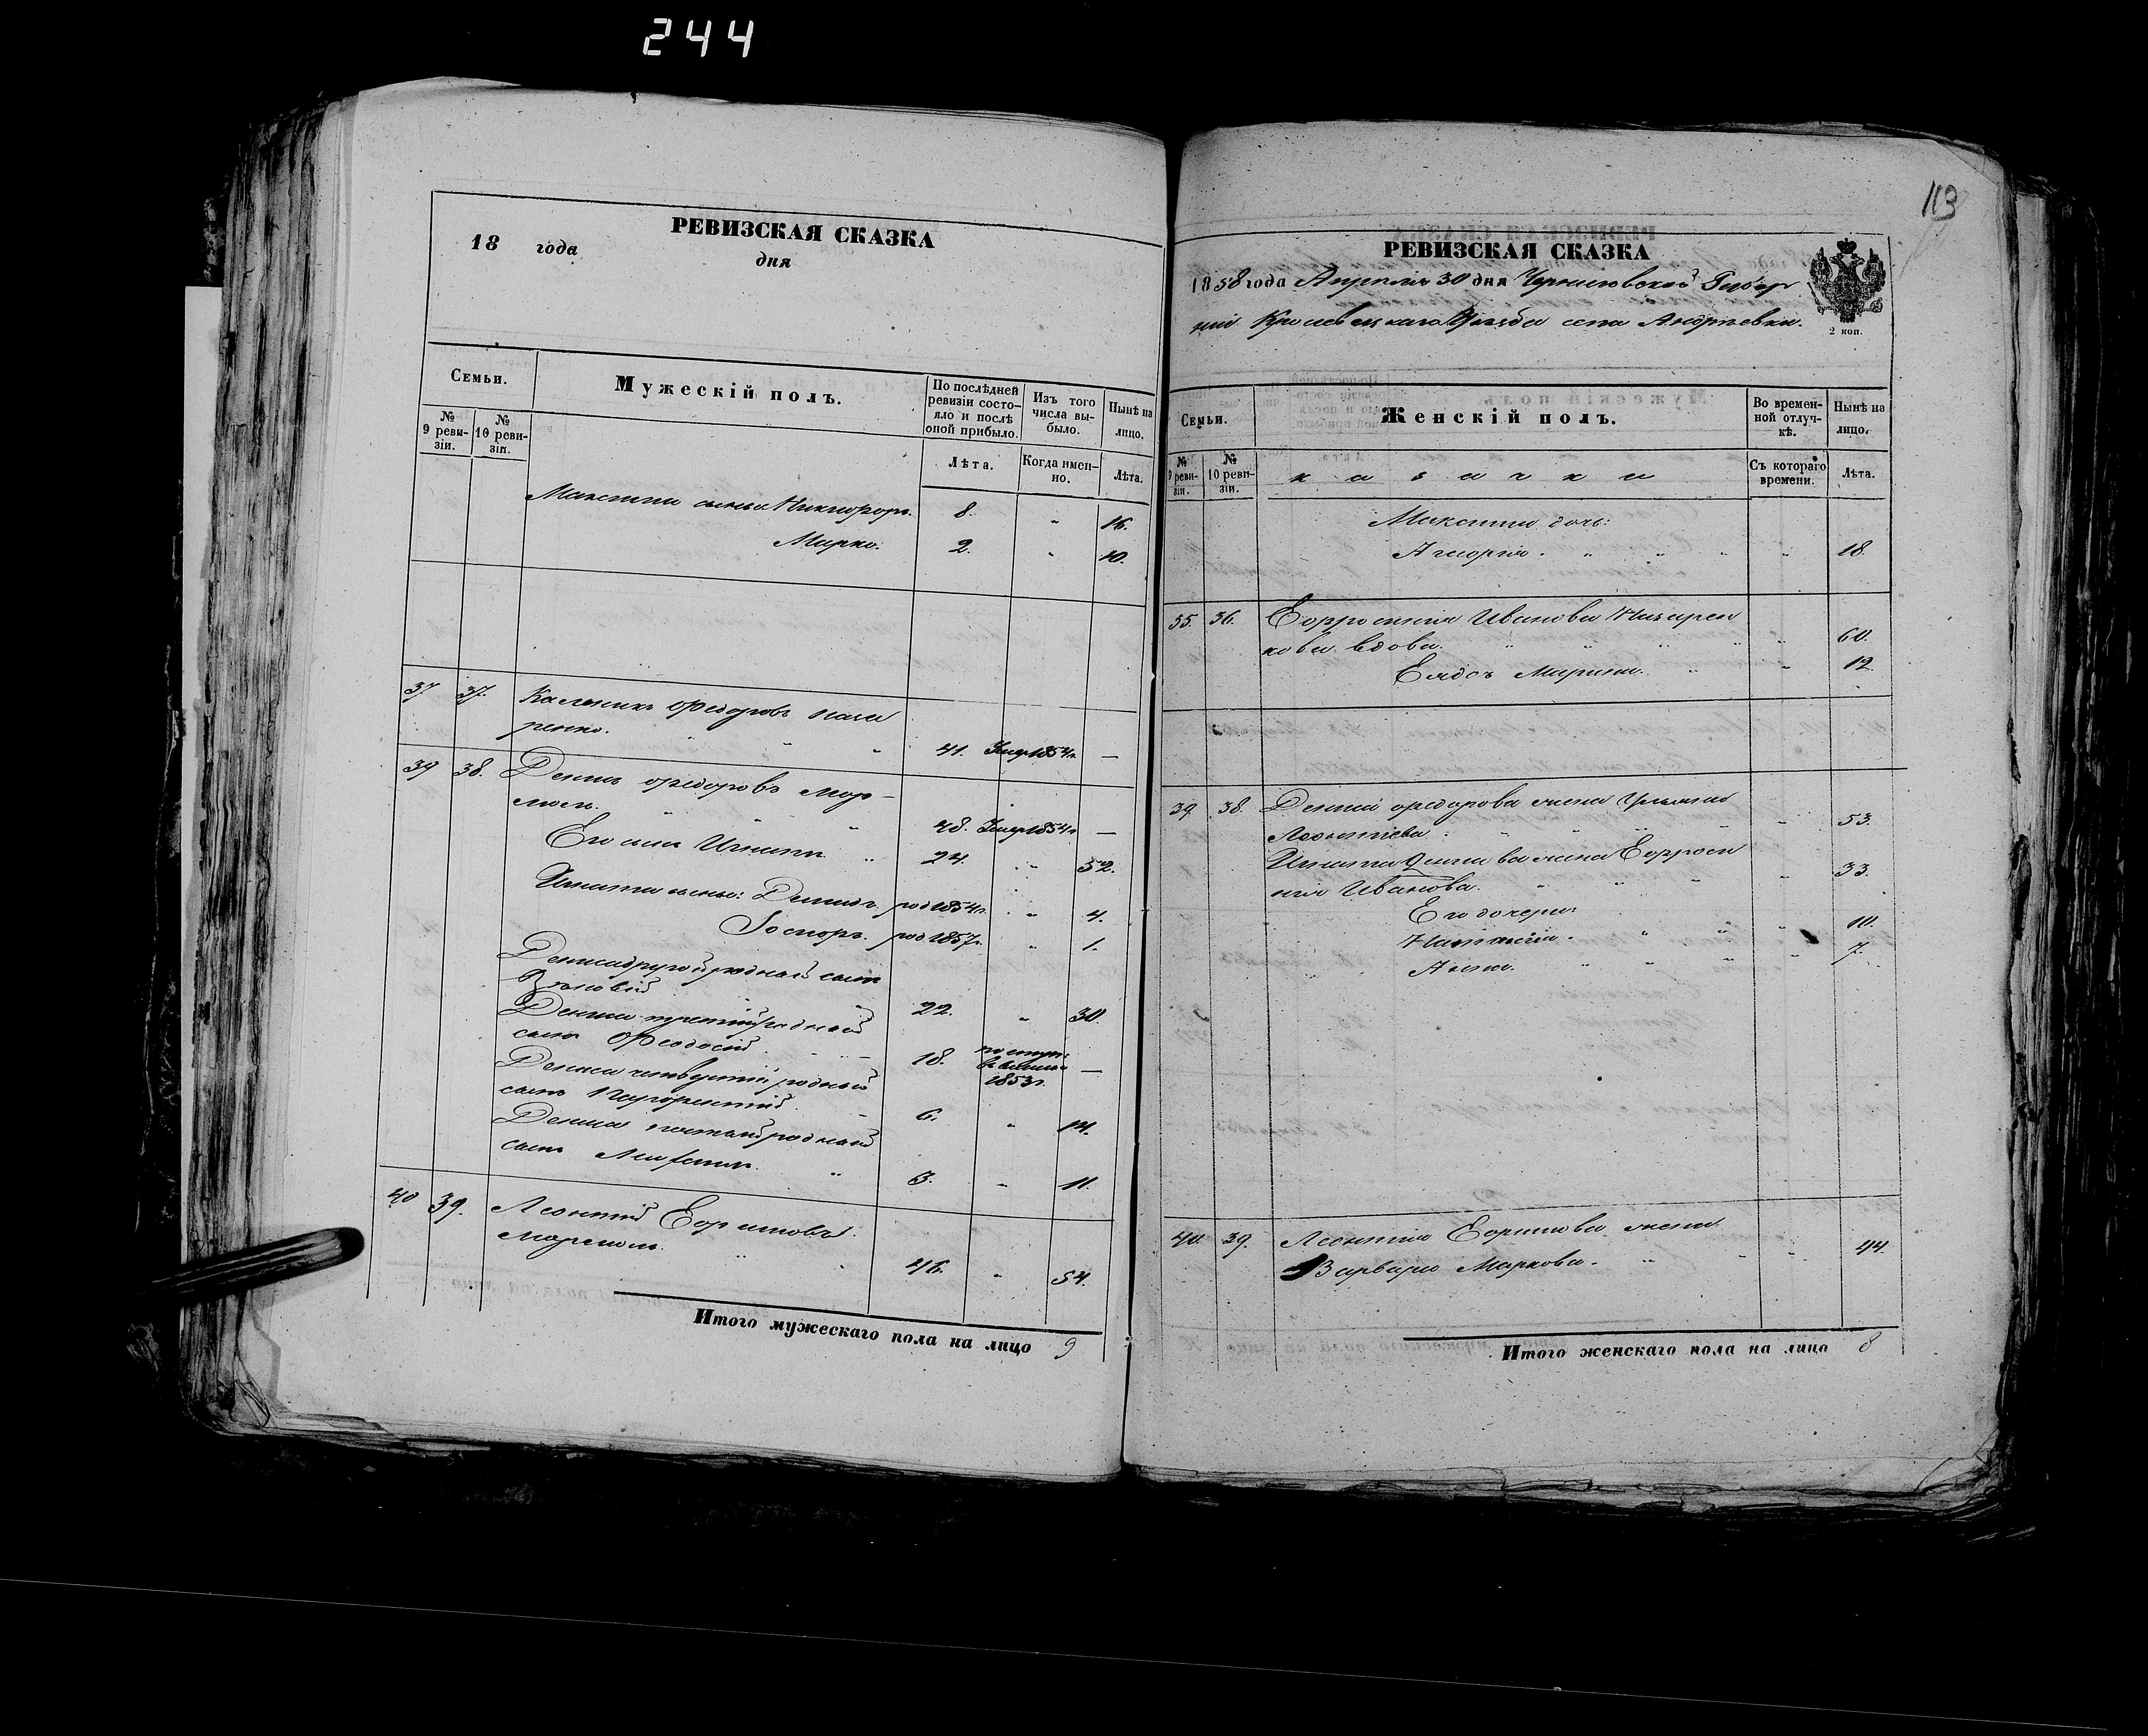 244
РЕВИЗСКАЯ СКАЗКА
18 года дня
Семьи.
№ 9 реви-зіи.
№ 10 реви-зіи.
Мужескій полъ.
По послѣдней ревизіи состо-яло и послѣ оной прибыло.
Изъ того числа вы-было.
Нынѣ на лицо.
Лѣта.
Когда имен-но.
Лѣта.
Максима сынья Никифоръ. 8. " 16.
Марко. 2. " 10.
37 37. Каленикъ Федоровъ Наза
ренко. " " " 41. Умер 1854г. —
39 38. Денис Федоровъ Мор-
" " 48. Умер 1854г —
Его сынъ Игнатъ " 24. " 32.
Игната сынъ: Демидъ. род 1854г. " 4.
Іосифъ. род 1857г. " 1.
Дениса другой родной сынъ
22. " 30.
Дениса третій родной
сынъ Феодосій. 18. поступ.
1853г. —
Дениса четвертый родный
сынъ 6. " 14.
Дениса пятый родный
сынъ " 3. " 11.
40 39. Леонтій Ефимовъ
" 46. " 54.
Итого мужескаго пола на лицо 9
113
РЕВИЗСКАЯ СКАЗКА
1858 года Апреля 30 дня Черниговской Губер
ніи Кролевецкаго Уезда села Андреевки.
2 коп.
Семьи.
№ 9 реви-зіи.
№ 10 реви-зіи.
Женскій полъ.
Во времен-ной отлуч-кѣ.
Нынѣ на лицо.
казачки
Съ котораго времени.
Лѣта.
Максима дочь:
" " " " 18.
35. 36. Ефросинія Иванова Назарен
кова вдова. " " " " 60.
Ея дочь Марина. " " 12.
39. 38. Дениса Федорова жена
" " " 53.
Игната Денисова жена Ефроси
нія Иванова. " " " " 33.
Его дочери:
Наталия. " " " 10.
Анна. " " " 7.
40. 39. Леонтія Ефимова жена
Варвара Маркова. " " " 44.
Итого женскаго пола на лицо 8